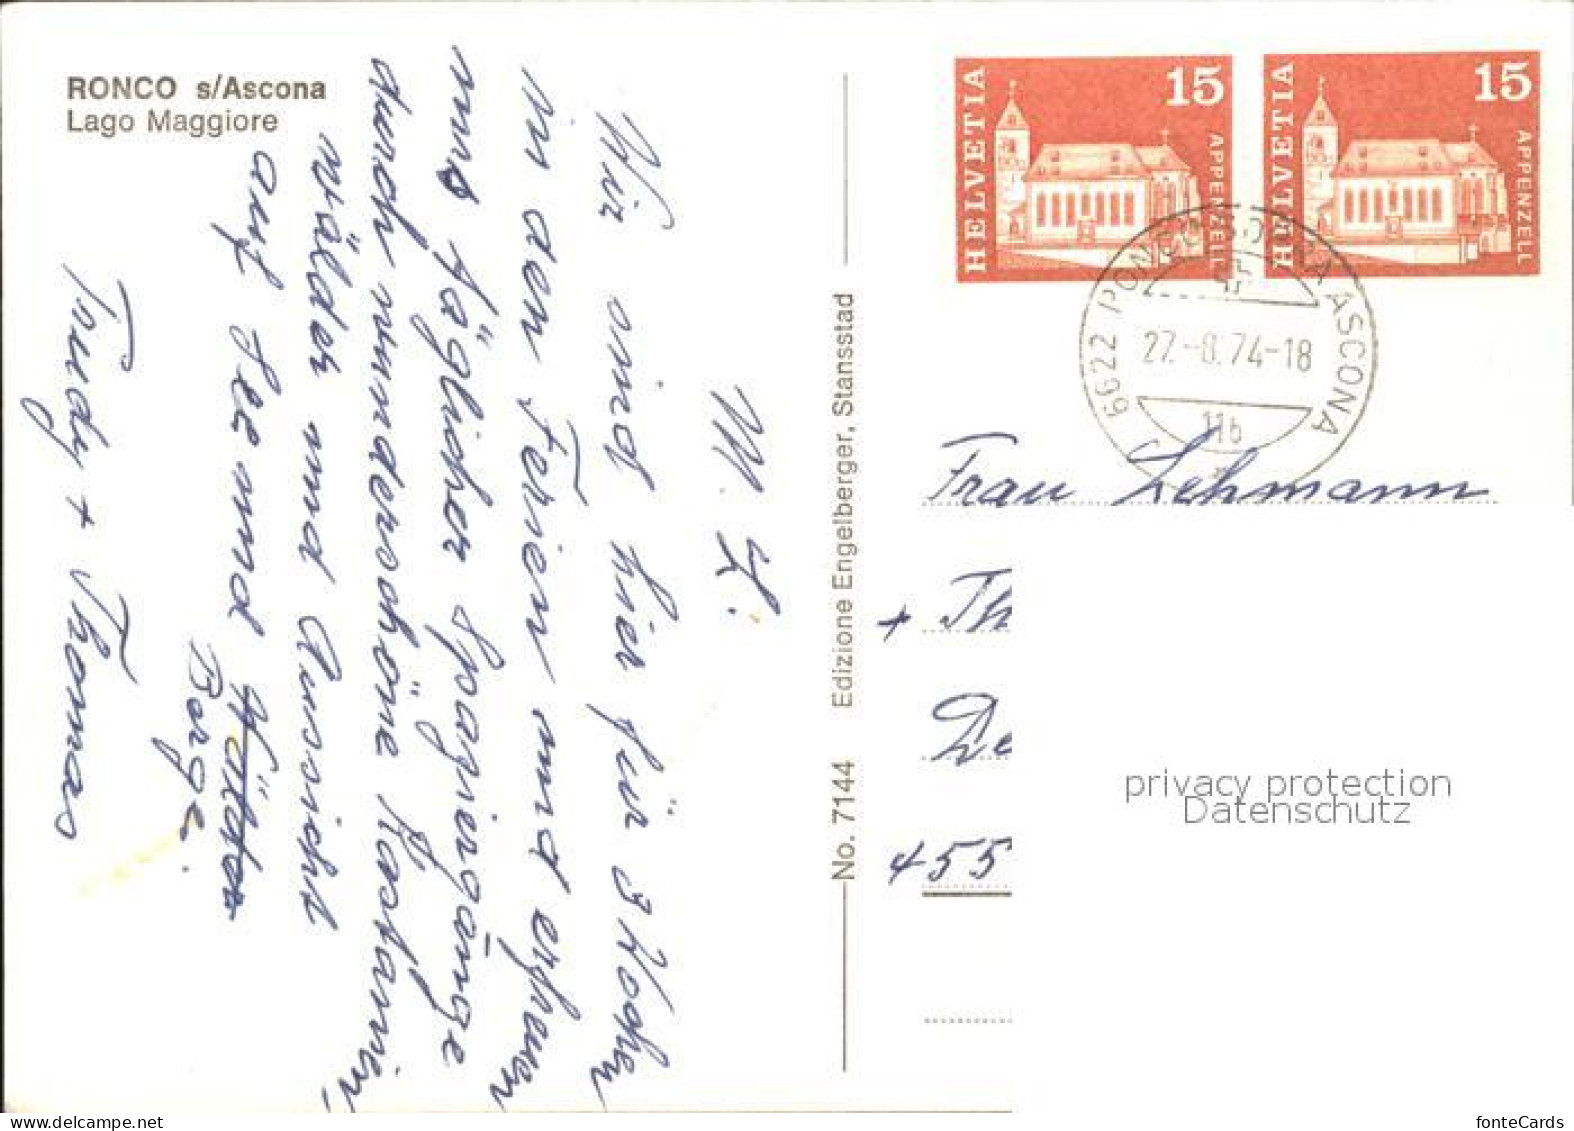 RONCO s/Ascona
Lago Maggiore
M. L.
Wir sind hier für 3 Wochen
in den Ferien und erfreuen
uns täglicher Spaziergänge
durch wunderschöne Kastanien,
wälder und Aussicht
auf See und Wälder
Berge.
Trudy + Thomas
No. 7144 Edizione Engelberger, Stansstad
HELVETIA 15 APPENZELL
HELVETIA 15 APPENZELL
6622 RONCO SOPRA ASCONA
27.-8.74-18
11b
Frau Lehmann
+ Th
De
455
privacy protection
Datenschutz
fonteCards